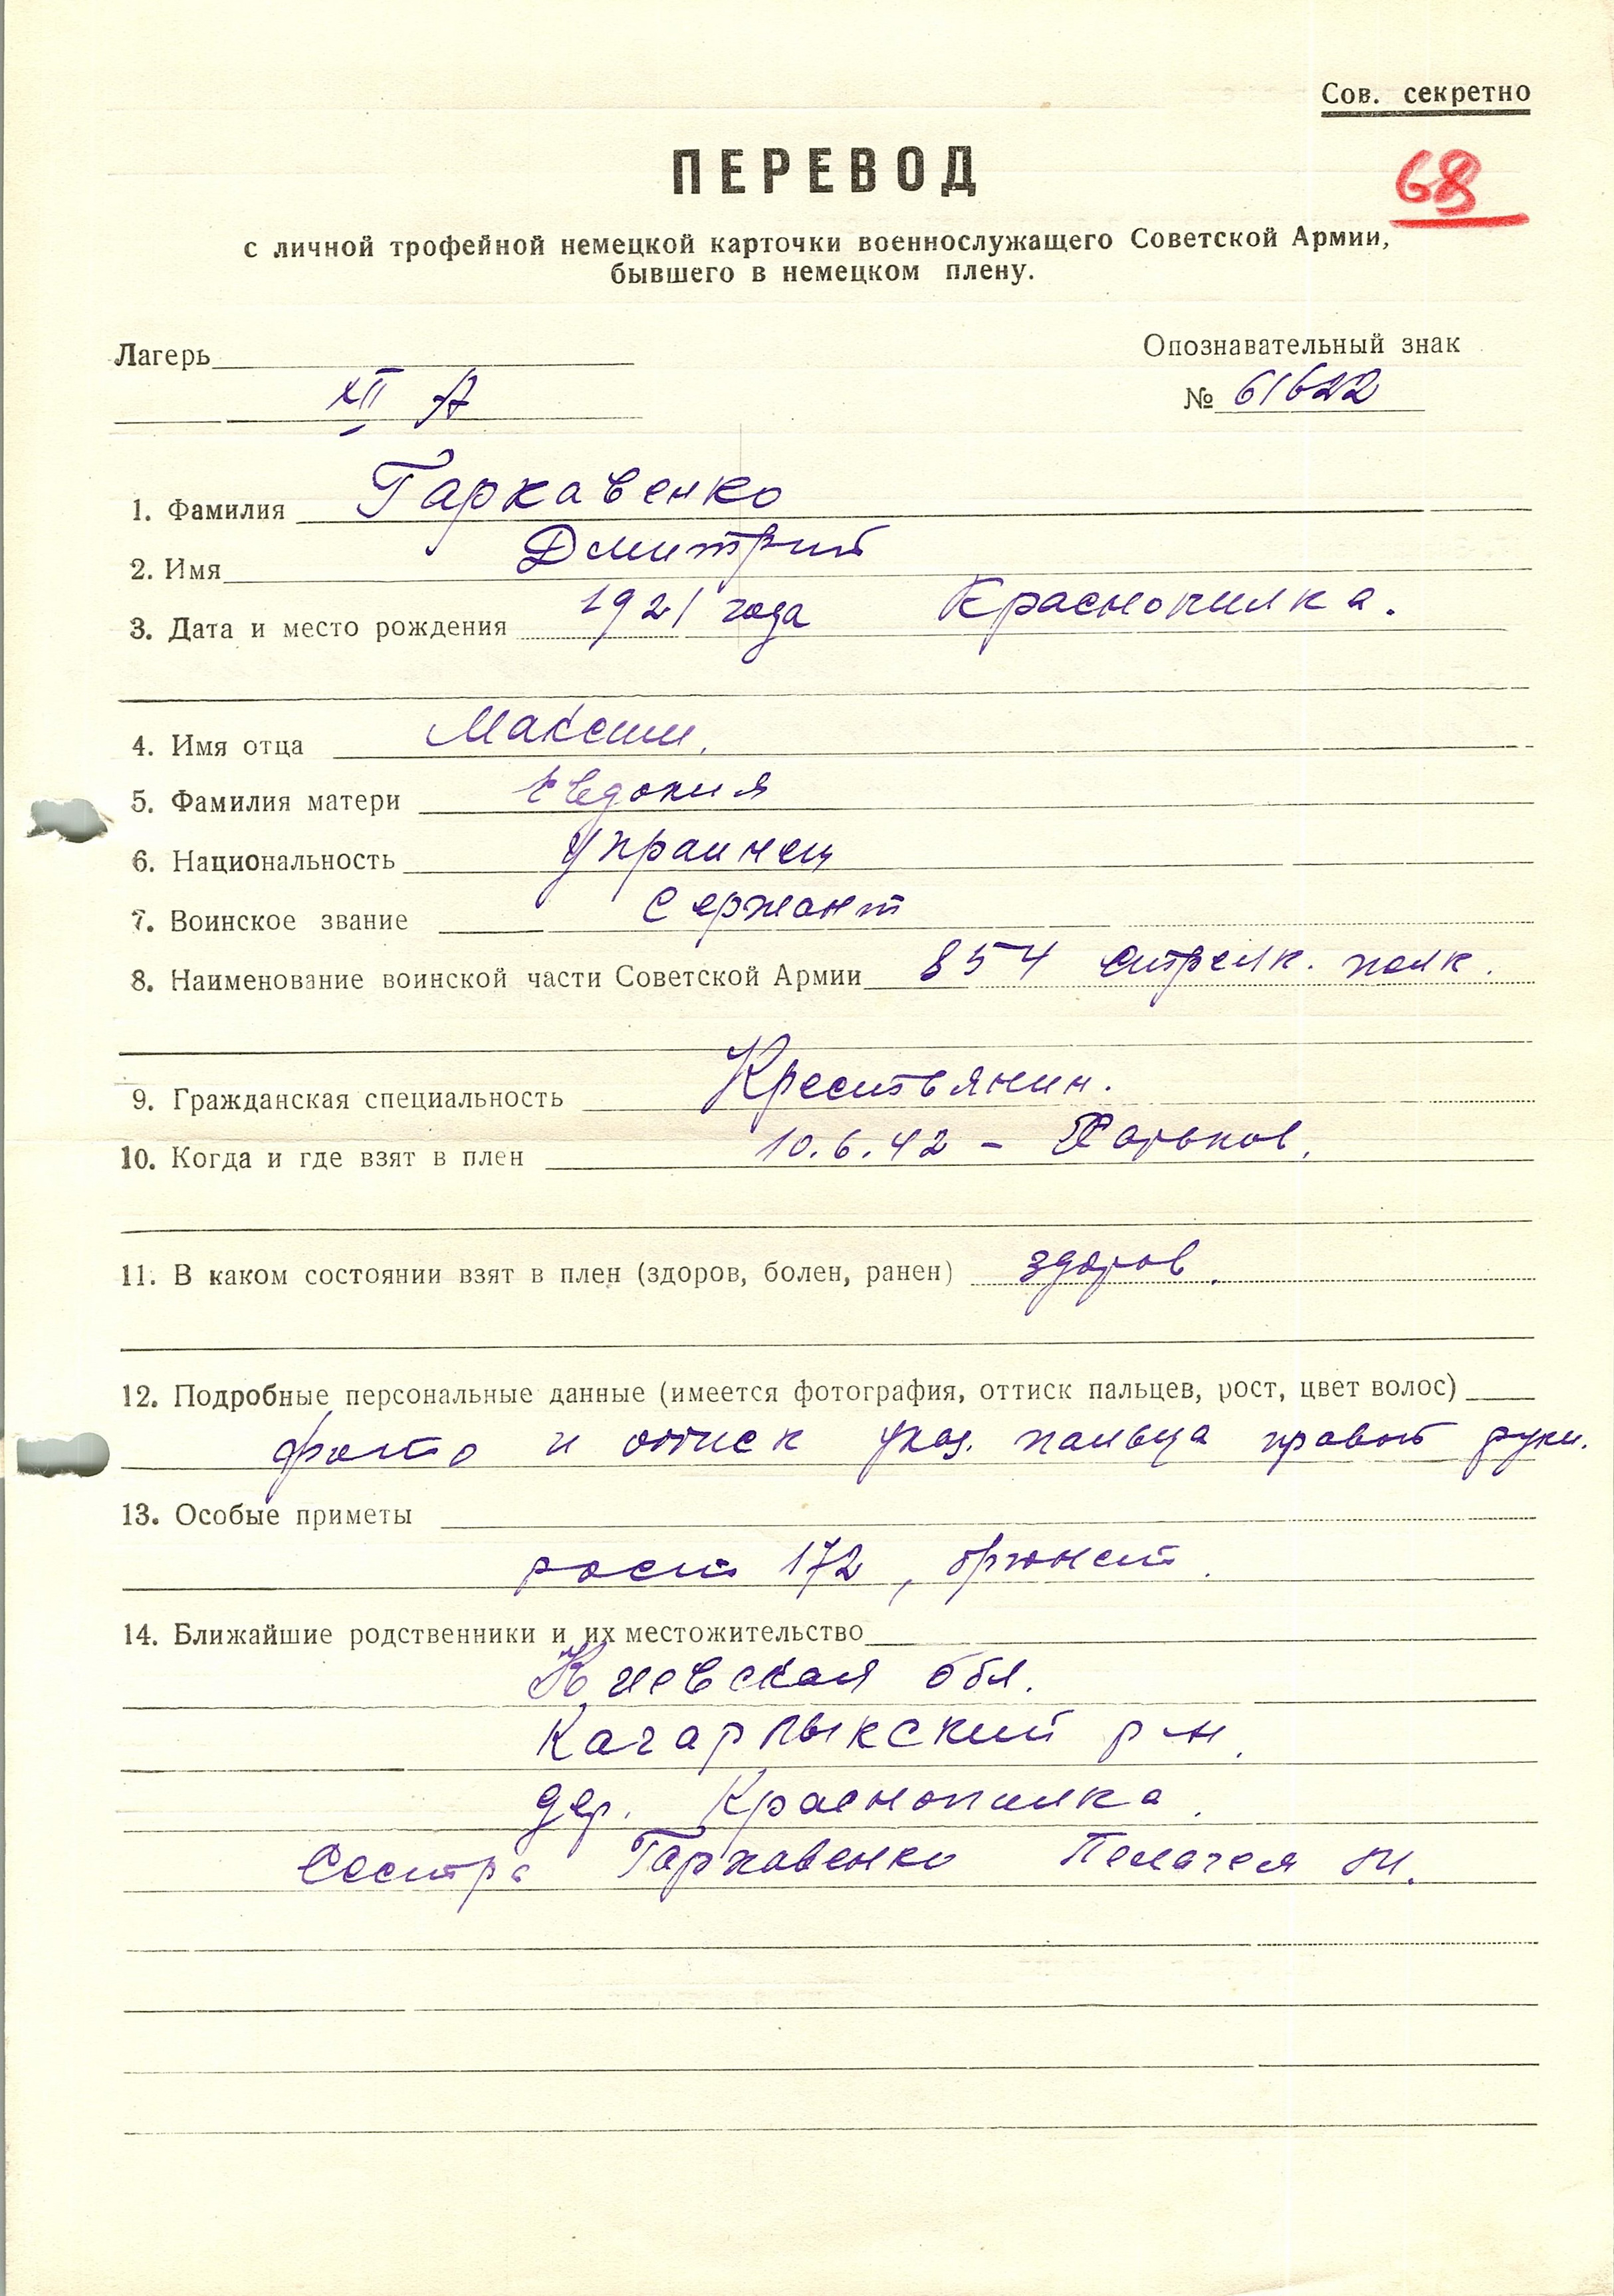 Сов. секретно
ПЕРЕВОД
68
с личной трофейной немецкой карточки военнослужащего Советской Армии,
бывшего в немецком плену.
Лагерь
Опознавательный знак
XII А
№ 61622
1. Фамилия Гаркавенко
2. Имя Дмитрий
3. Дата и место рождения 1921 года Краснопилка.
4. Имя отца Максим.
5. Фамилия матери Евдокия
6. Национальность Украинец
7. Воинское звание Сержант
8. Наименование воинской части Советской Армии 854 стрелк. полк.
9. Гражданская специальность Крестьянин.
10. Когда и где взят в плен 10.6.42 – Харьков.
11. В каком состоянии взят в плен (здоров, болен, ранен) здоров.
12. Подробные персональные данные (имеется фотография, оттиск пальцев, рост, цвет волос)
фото и оттиск указ. пальца правой руки.
13. Особые приметы
рост 172, брюнет.
14. Ближайшие родственники и их местожительство
Киевская обл.
Кагарлыкский р-н.
дер. Краснопилка.
Сестра Гаркавенко Пелагея М.